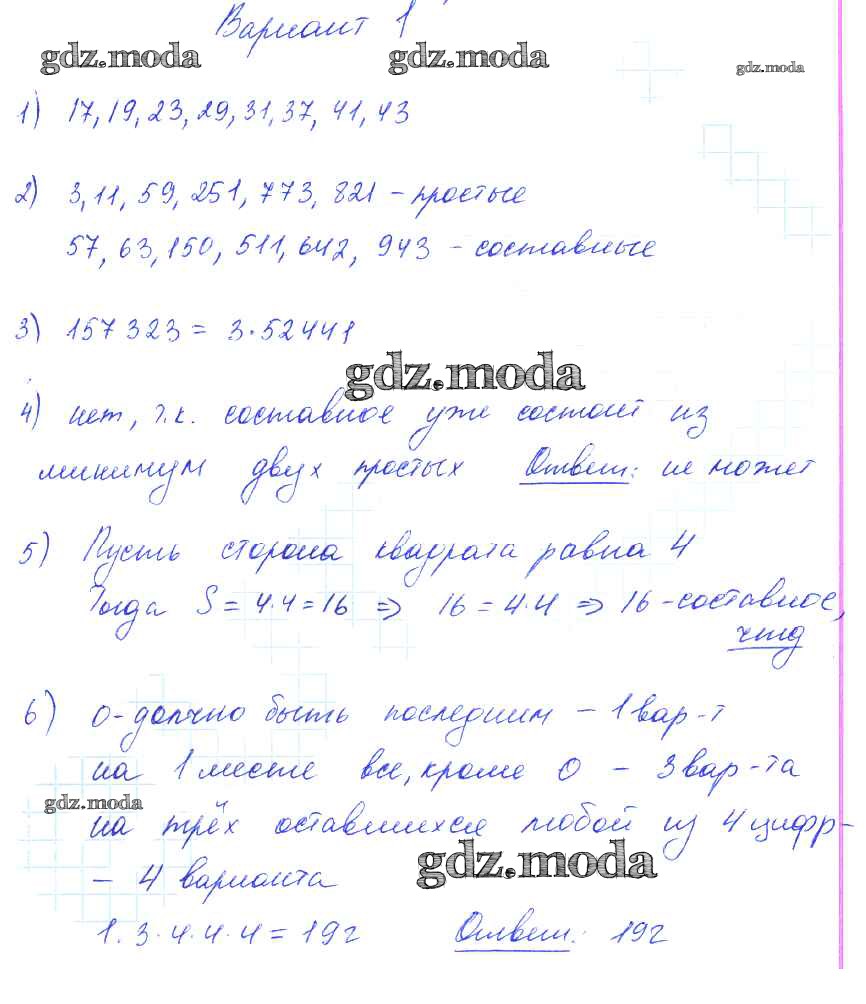 Вариант 1
gdz.moda gdz.moda gdz.moda
1) 17, 19, 23, 29, 31, 37, 41, 43
2) 3, 11, 59, 251, 773, 821 - простые
57, 63, 150, 511, 642, 943 - составные
3) 157 323 = 3·52441
gdz.moda
4) нет, т.к. составное уже состоит из
минимум двух простых Ответ: не может
5) Пусть сторона квадрата равна 4
Тогда S = 4·4 = 16 => 16 = 4·4 => 16 - составное,
чтд
6) 0 - должно быть последним - 1 вар-т
на 1 месте все, кроме 0 - 3 вар-та
gdz.moda
на трёх оставшихся любой из 4 цифр -
gdz.moda
- 4 варианта
1·3·4·4·4 = 192 Ответ: 192